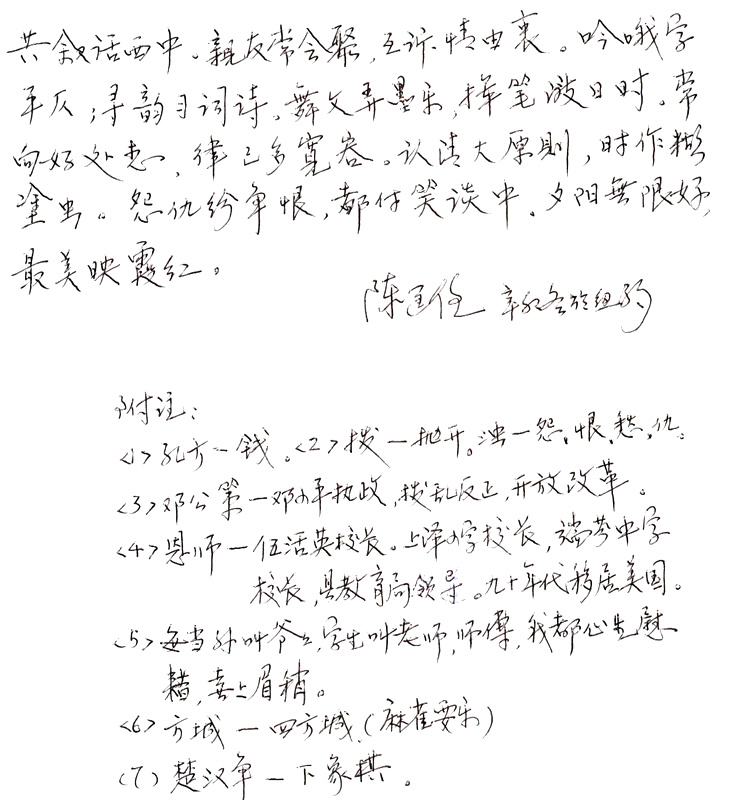 共叙话西中。親友常会聚,互诉情由衷。吟哦字
平仄,寻韵习词诗。舞文弄墨乐,挥笔激日时。常
向好处想,律己多寬容。认清大原則,时作糊
塗虫。怨仇纷争恨,都付笑谈中。夕阳無限好,
最美映霞红。
陈 辛卯冬於纽约
附注:
<1>孔方—钱。<2>拨—抛开。浊—怨,恨,愁,仇。
<3>邓公策—邓小平执政,拨乱反正,开放改革。
<4>恩师—伍活英校长。上泽小学校长,端芬中学
校长,县教育局领导。九十年代移居美国。
<5>每当孙叫爷爷,学生叫老师,师傅,我都心生慰
藉,喜上眉梢。
<6>方城—四方城,(麻雀耍乐)
(7)楚汉争—下象棋。